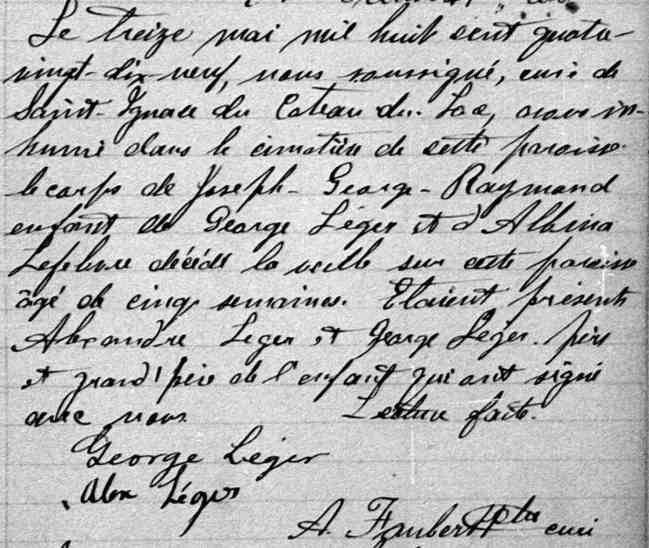 Le treize mai mil huit cent quatre-
vingt-dix-neuf, nous soussigné, curé de
Saint-Ignace du Coteau du Lac, avons in-
humé dans le cimetière de cette paroisse
le corps de Joseph-George-Raymond
enfant de George Léger et d'Albina
Lefebvre décédé la veille sur cette paroisse
âgé de cinq semaines. Etaient présents
Alexandre Leger et George Leger. père
et grand'père de l'enfant qui ont signé
avec nous Lecture faite.
George Léger
Alex Léger
A. Faubert Ptre curé